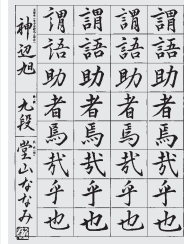 謂語助者焉哉乎也
謂語助者焉哉乎也
謂語助者焉哉乎也
謂語助者焉哉乎也
神辺旭
九段 堂山ななみ